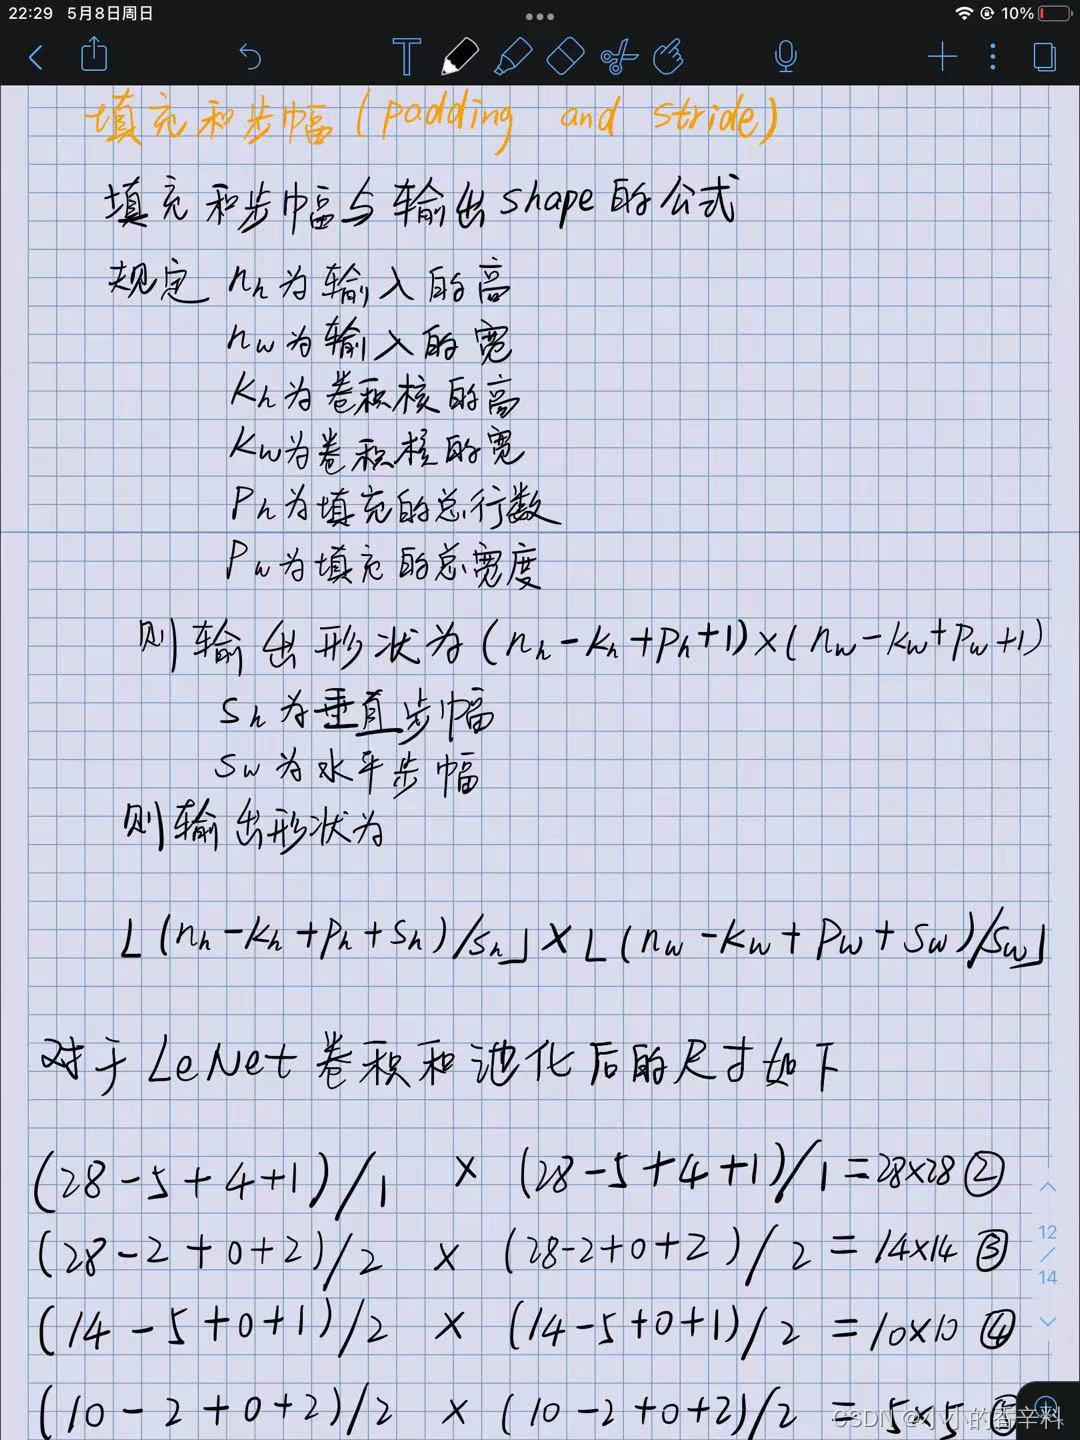 22:29 5月8日周日 10%
填充和步幅(padding and stride)
填充和步幅与输出shape的公式
规定 nh为输入的高
nw为输入的宽
Kh为卷积核的高
Kw为卷积核的宽
Ph为填充的总行数
Pw为填充的总宽度
则输出形状为(nh-kh+ph+1)×(nw-kw+pw+1)
Sh为垂直步幅
Sw为水平步幅
则输出形状为
⌊(nh-kh+ph+sh)/sh⌋×⌊(nw-kw+pw+sw)/sw⌋
对于LeNet卷积和池化后的尺寸如下
(28-5+4+1)/1 × (28-5+4+1)/1=28×28 ②
(28-2+0+2)/2 × (28-2+0+2)/2=14×14 ③
(14-5+0+1)/2 × (14-5+0+1)/2=10×10 ④
(10-2+0+2)/2 × (10-2+0+2)/2=5×5
12
/
14
CSDN @小小的香辛料